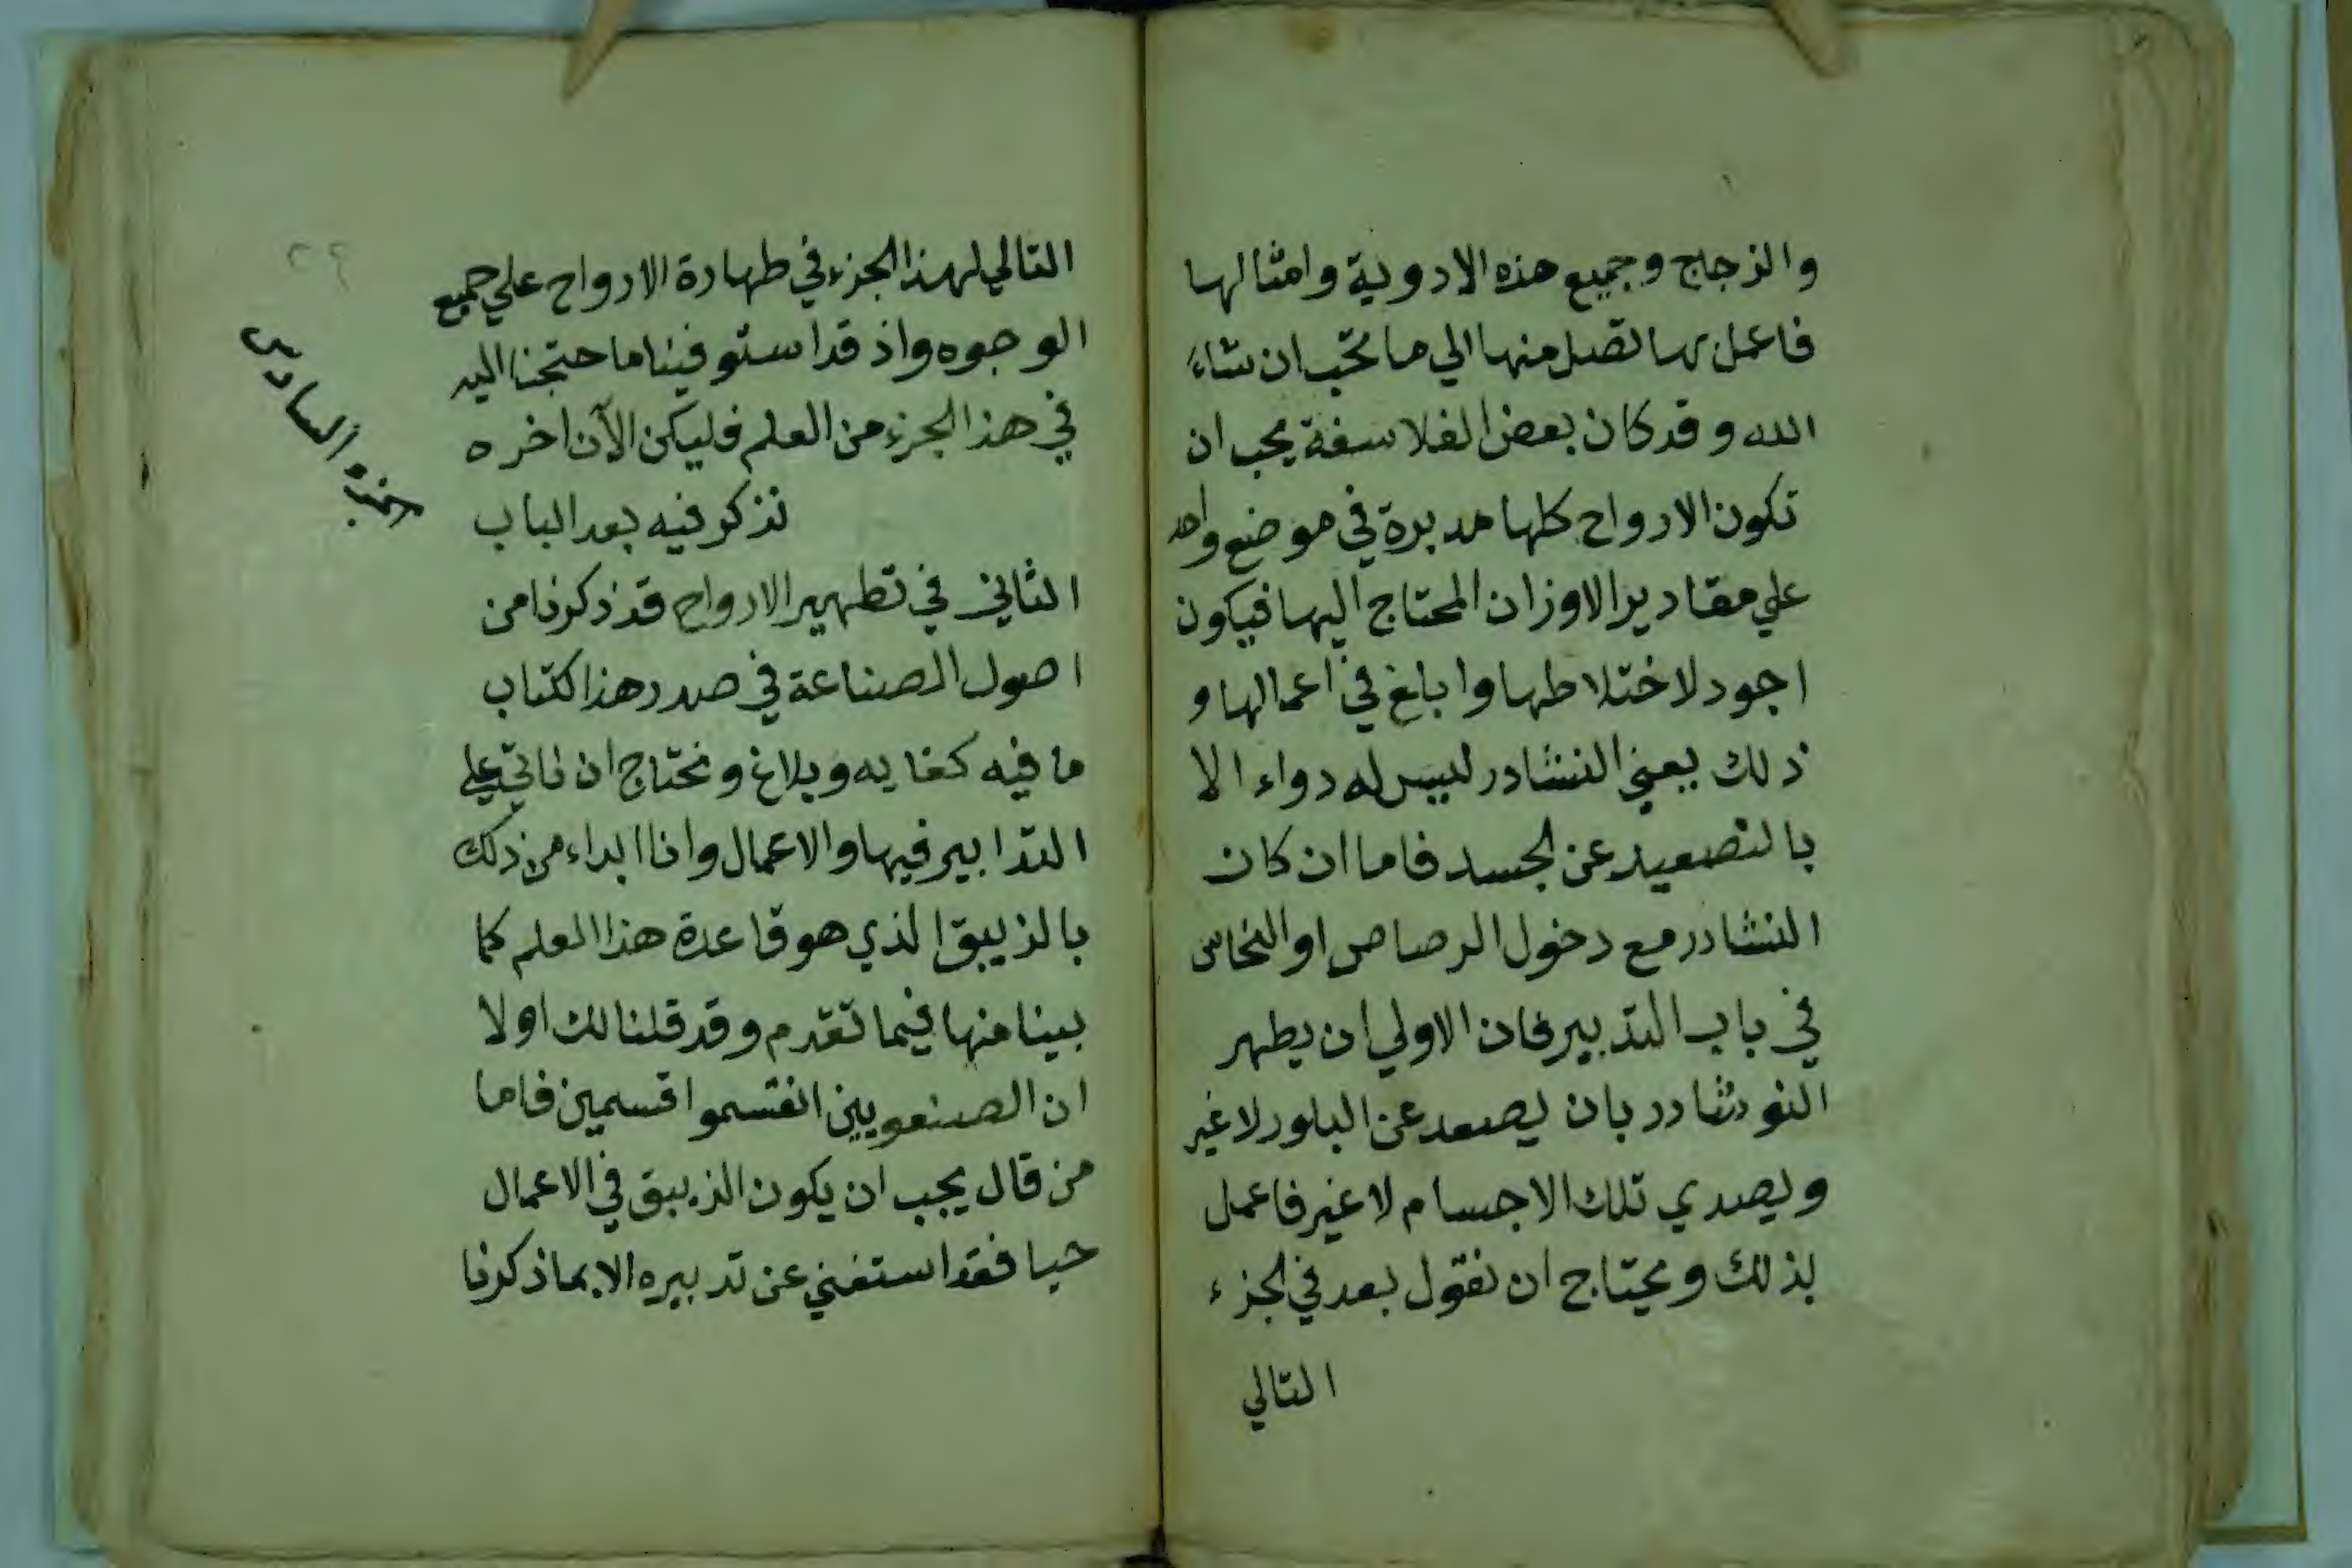 والزجاج وجميع هذه الادوية وامثالها
فاعمل بها تصل منها الي ما تحب ان شاء
الله وقد كان بعض الفلاسفة يحب ان
تكون الارواح كلها مدبرة في موضع واحد
علي مقادير الاوزان المحتاج اليها فيكون
اجود لاختلاطها وابلغ في اعمالها و
ذلك يعني النشادر ليس له دواء الا
بالتصعيد عن الجسد فاما ان كان
النشادر مع دخول الرصاص او النحاس
في باب التدبير فان الاولي ان يطهر
النوشادر بان يصعد عن البلور لا غير
ويصدي تلك الاجسام لا غير فاعمل
بذلك ويحتاج ان نقول بعد في الجزء
التالي
التالي لهذا الجزء في طهارة الارواح علي جميع
الوجوه واذ قد استوفينا ما حتجنا اليه
في هذا الجزء من العلم فليكن الآن اخره
نذكر فيه بعد الباب
الثاني في تطهير الارواح قد ذكرنا من
اصول الصناعة في صدر هذا الكتاب
ما فيه كفايه وبلاغ ونحتاج ان ناتي علي
التدابير فيها والاعمال وانا ابداء من ذلك
بالزيبق الذي هو قاعدة هذا العلم كما
بينا منها فيما تقدم وقد قلنا لك اولا
ان الصنعويين انقسموا قسمين فاما
من قال يجب ان يكون الزيبق في الاعمال
حيا فقد استغني عن تدبيره الا بما ذكرنا
السادس
٢٩